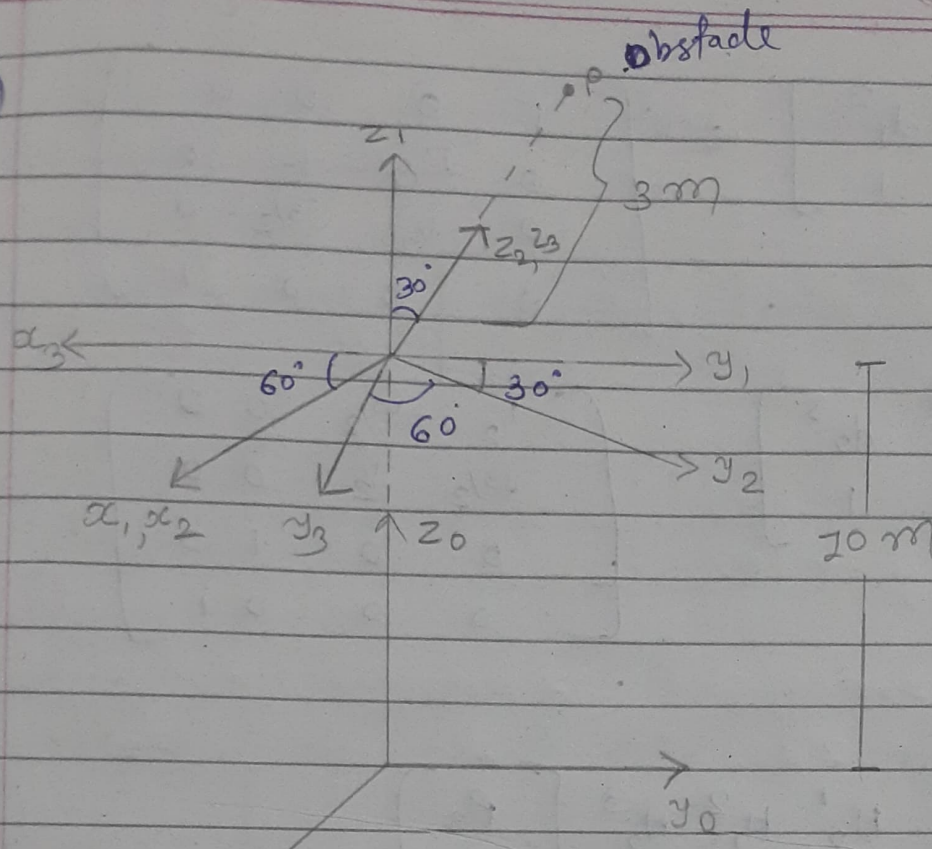 obstacle
P
z₁
3 m
z₂,z₃
30°
x₃
y₁
60°
30°
60°
y₂
x₁,x₂
y₃
z₀
10 m
y₀